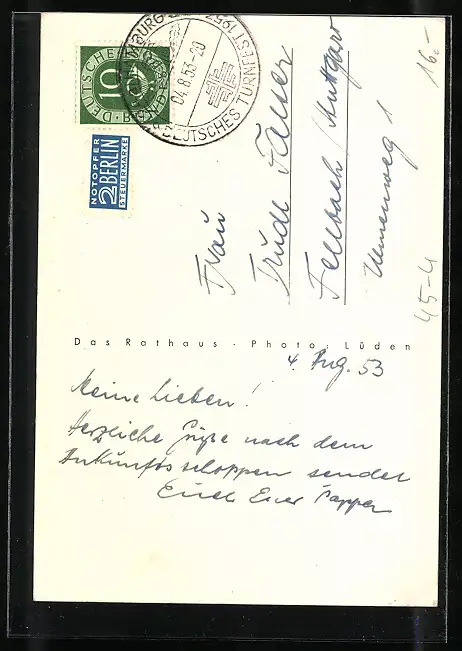 DEUTSCHE BUNDESPOST
10
HAMBURG 1953
04.8.53-20
DEUTSCHES TURNFEST
NOTOPFER
2 BERLIN
STEUERMARKE
Frau
Trude
Fellbach / Stuttgart
Ulmenweg 1
16.-
45-4
Das Rathaus · Photo: Lüden
4. Aug. 53
Meine Lieben!
Herzliche Grüße nach dem
Ankunftsschoppen sendet
Euch Euer Pappa